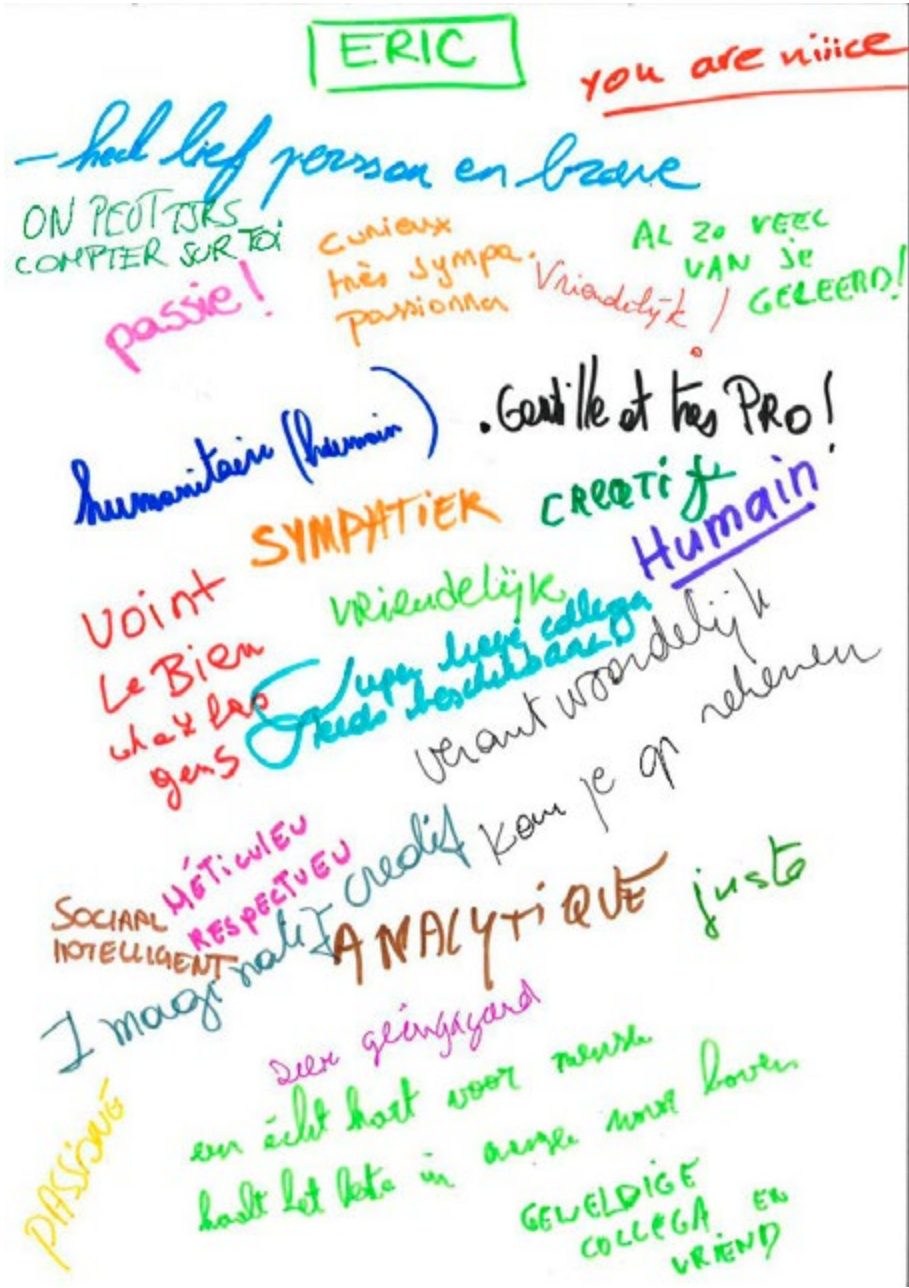 ERIC
you are niiice
- heel lief persson en brave
ON PEUT TJRS
COMPTER SUR TOI
curieux
très sympa.
passionna
AL ZO VEEL
VAN JE
GELEERD!
passie!
Vriendelijk!
humanitair (humain)
. Gentille et très PRO!
SYMPATIEK
CREATIF
Humain
Voint
Le Bien
chez les
gens
vriendelijk
super lieve collega
steeds beschikbaar
verantwoordelijk
kan je op rekenen
MÉTICULEU
RESPECTUEU
SOCIAAL
INTELLIGENT
Imaginatif
credit
ANALYTIQUE
juste
zeer geëngageerd
PASSIONÉ
een écht hart voor mensen
haalt het beste in naar boven
GEWELDIGE
COLLEGA EN
VRIEND